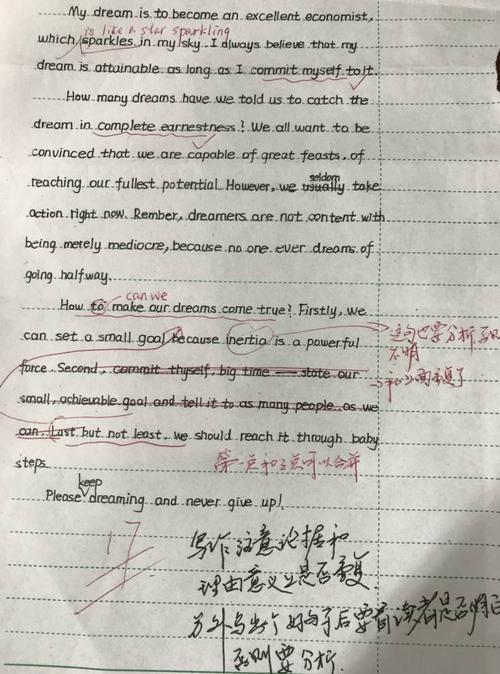 My dream is to become an excellent economist,
is like a star sparkling
which sparkles in my sky. I always believe that my
dream is attainable as long as I commit myself to it.
How many dreams have we told us to catch the
dream in complete earnestness? We all want to be
convinced that we are capable of great feasts, of
reaching our fullest potential. However, we usually take
seldom
action right now. Rember, dreamers are not content with
being merely mediocre, because no one ever dreams of
going halfway.
can we
How to make our dreams come true? Firstly, we
can set a small goal because inertia is a powerful
这句也要分析
不明
force. Second, commit thyself, big time — state our
和上面重复了
small, achievable goal and tell it to as many people as we
can. Last but not least, we should reach it through baby
steps.
第一点和三点可以合并
keep
Please dreaming and never give up!
17
写作注意论据和
理由意义上是否重复
另外写出个好句子后要看读者是否明白
否则要分析.